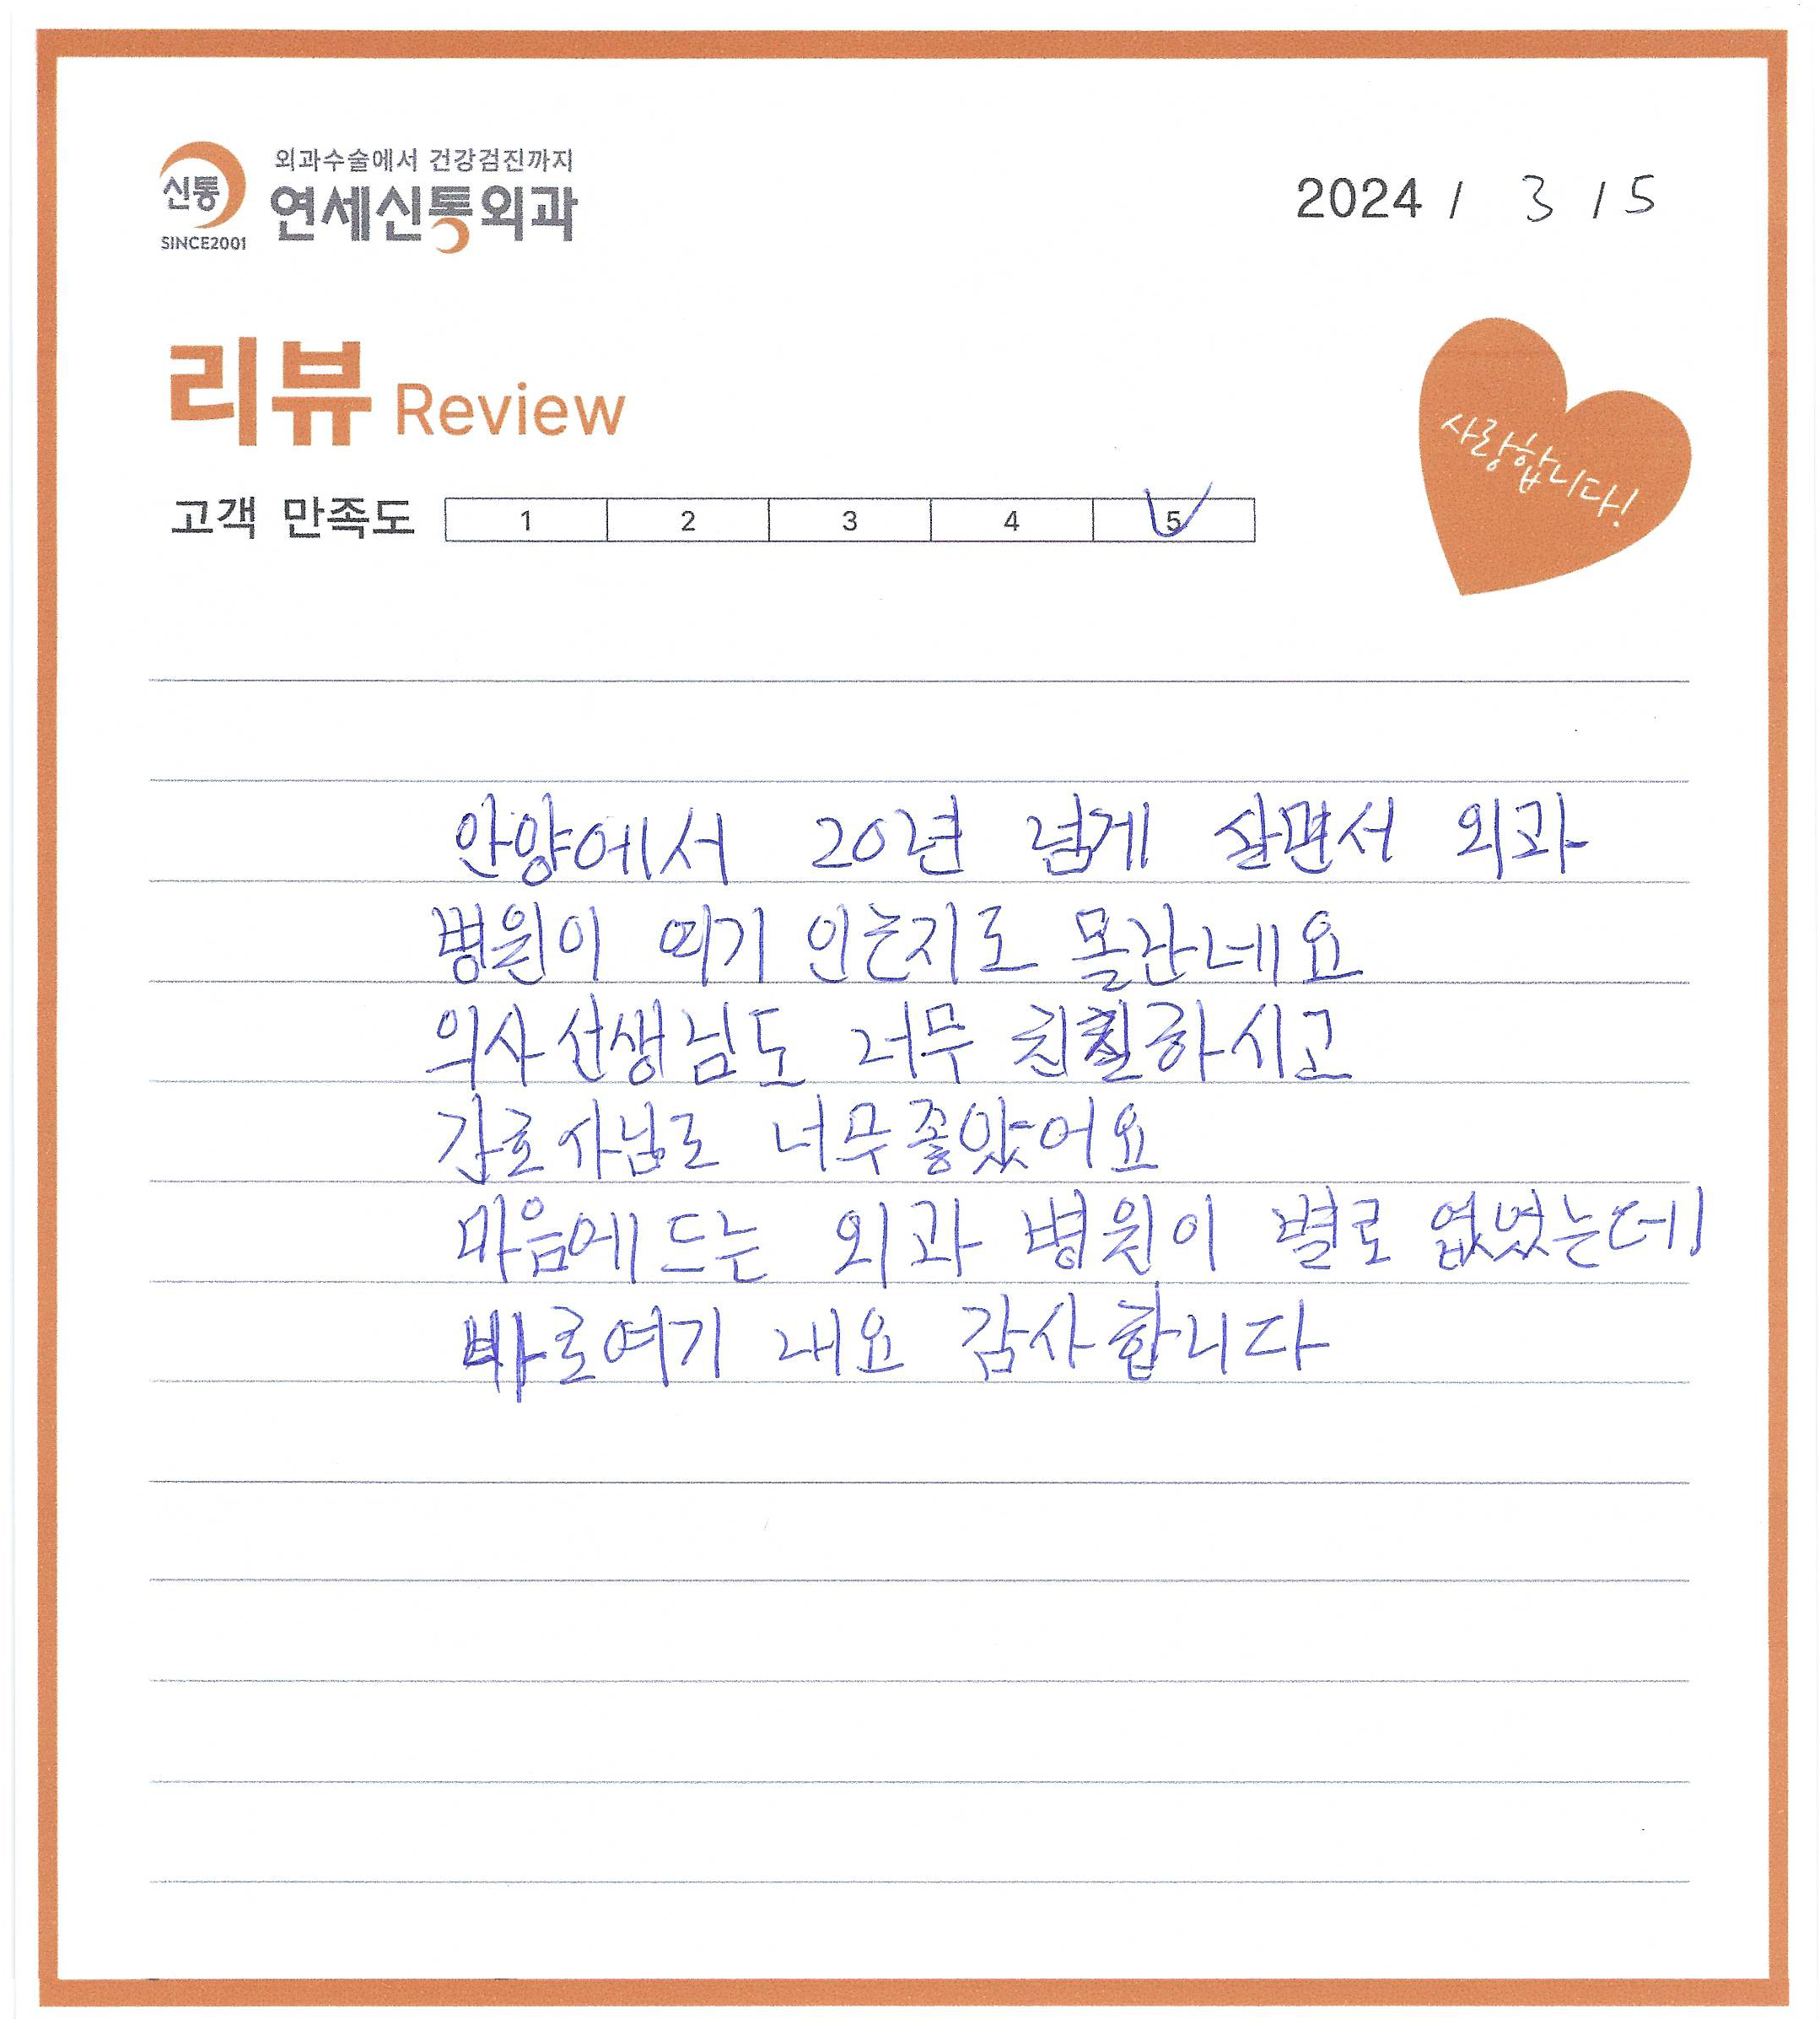 외과수술에서 건강검진까지
신통
연세신통외과
SINCE2001
2024 / 3 / 5
리뷰 Review
사랑합니다!
고객 만족도 1 2 3 4 5
안양에서 20년 넘게 살면서 외과
병원이 여기 인는지도 몰란네요
의사선생님도 너무 친칠하시고
간호사님도 너무좋았어요
마음에드는 외과 병원이 별로 없였는데
바로여기 내요 감사합니다